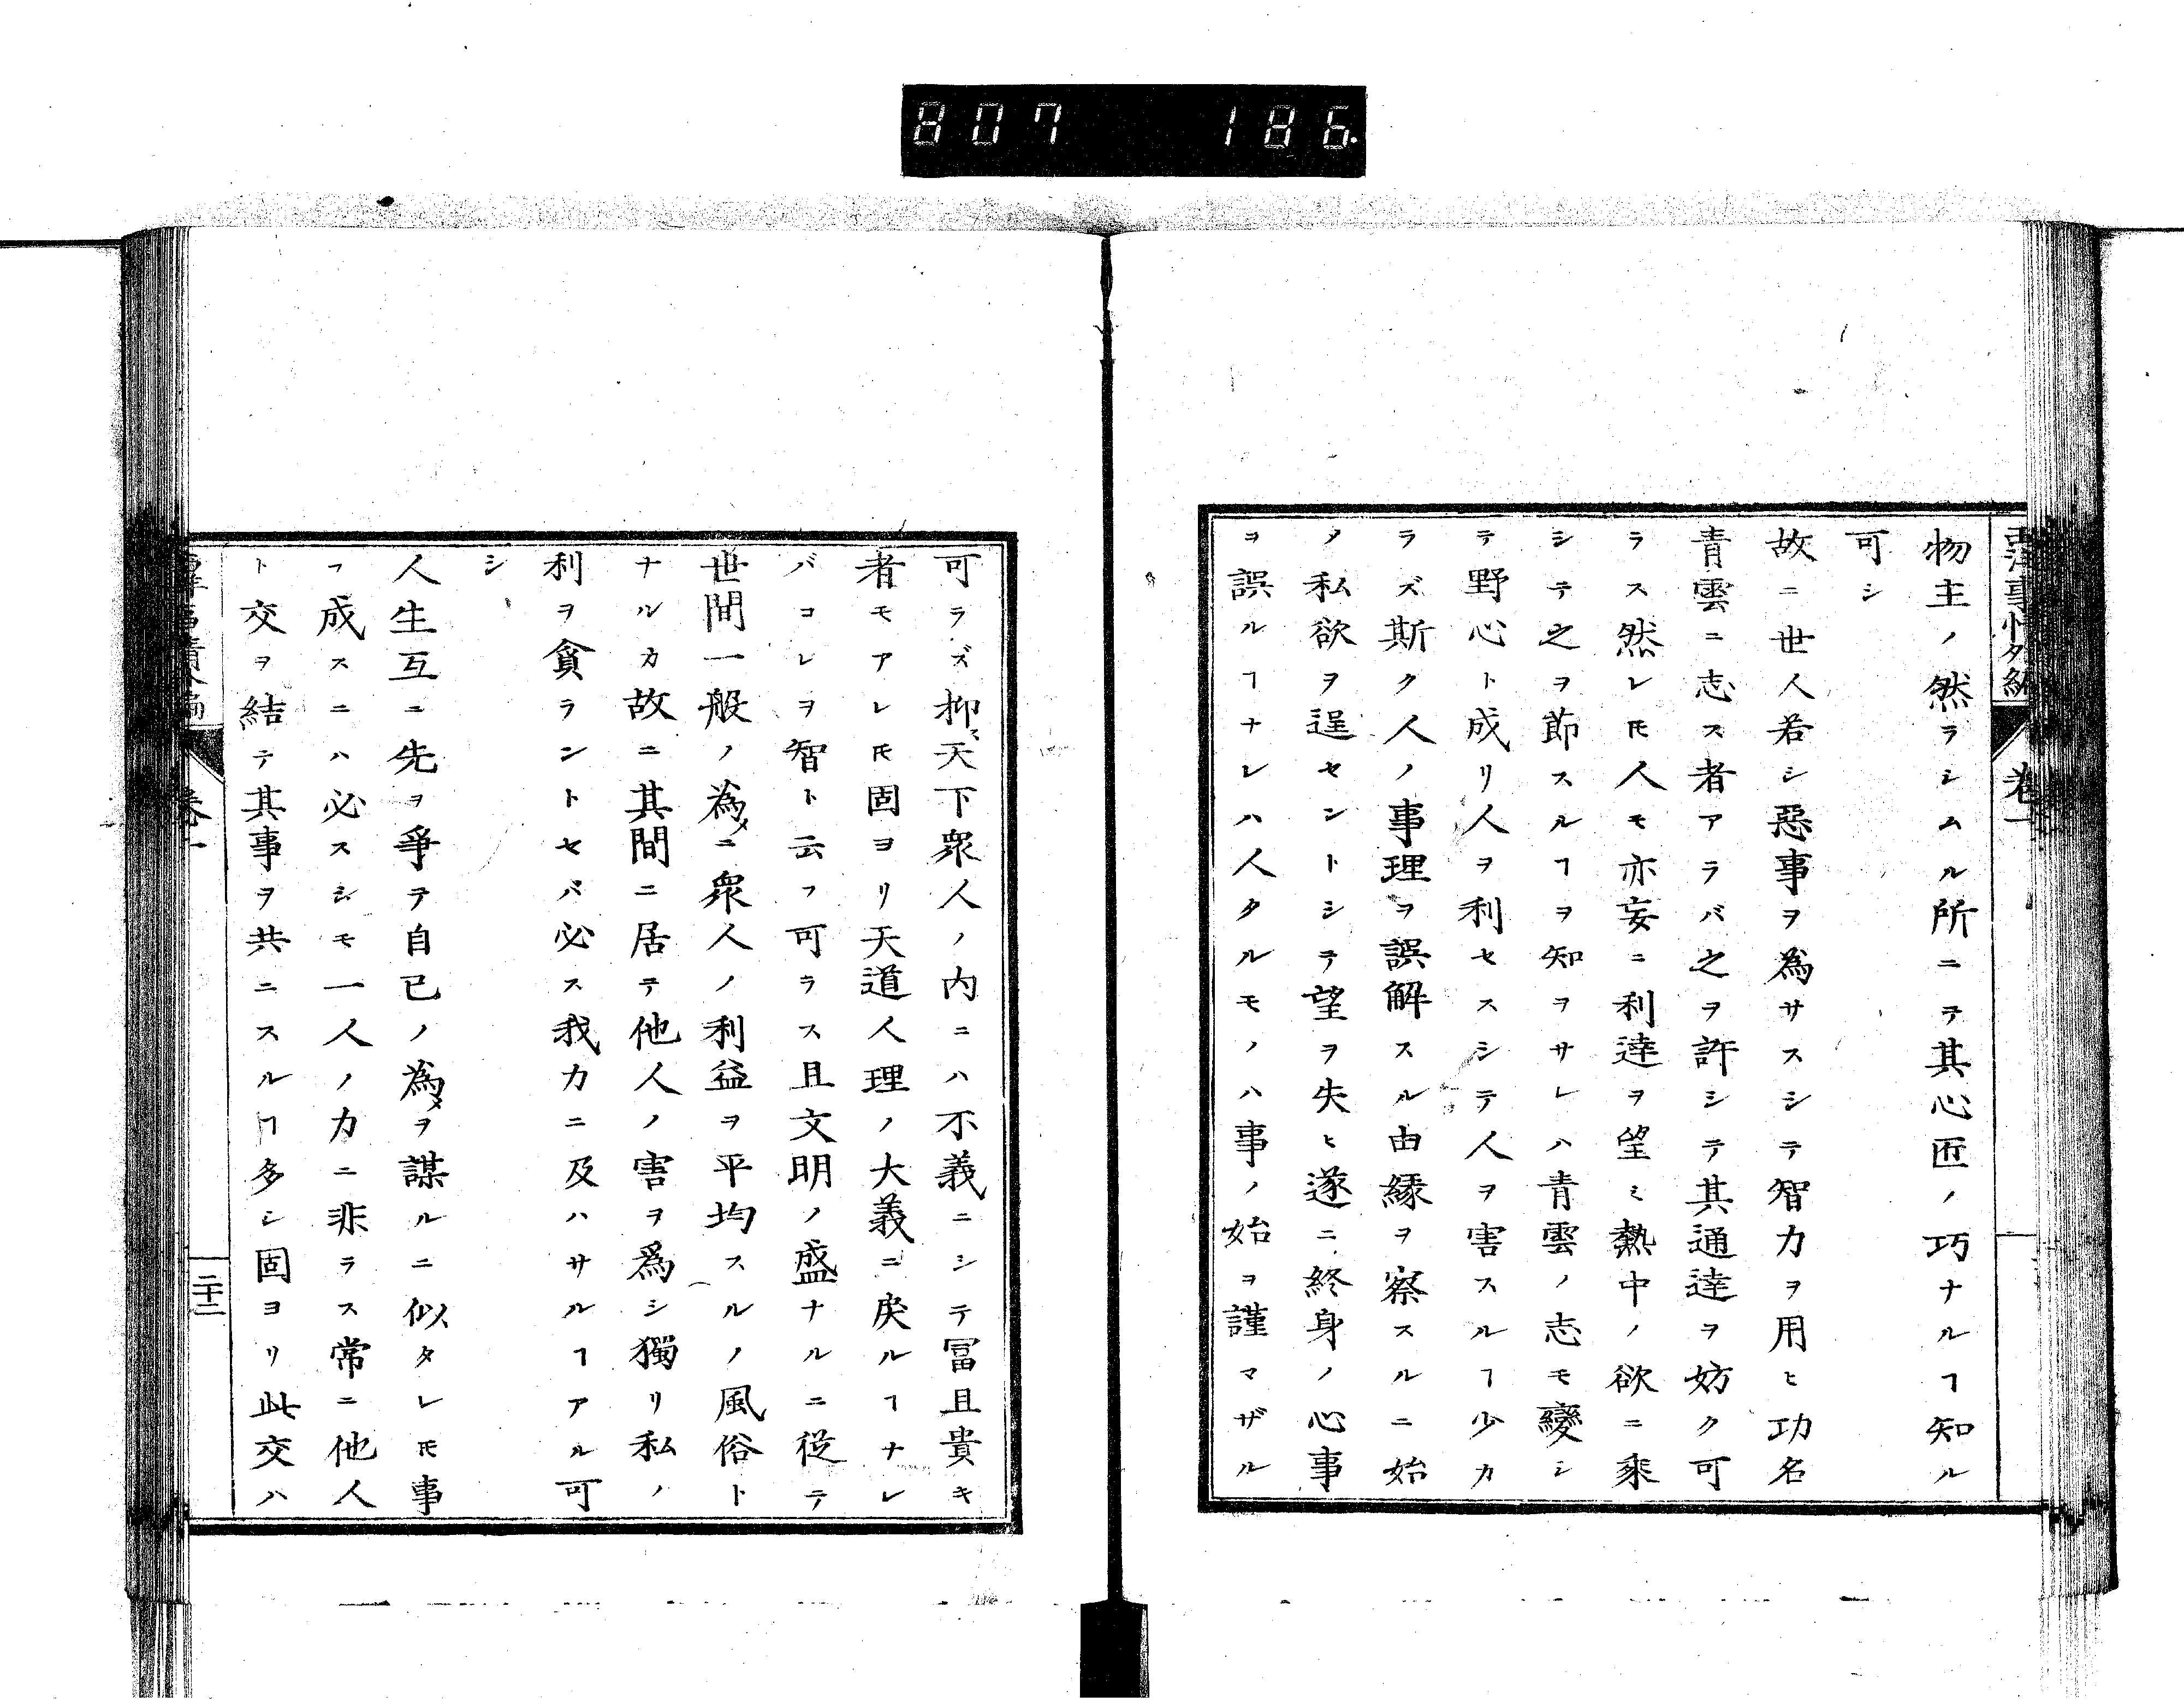 807 186
西洋事情外編 巻一
物主ノ然ラシムル所ニテ其心匠ノ巧ナルヿ知ル
可シ
故ニ世人若シ惡事ヲ為サスシテ智力ヲ用ヒ功名
青雲ニ志ス者アラバ之ヲ許シテ其通達ヲ妨ク可
ラス然レ𪜈人モ亦妄ニ利達ヲ望ミ熱中ノ欲ニ乘
シテ之ヲ節スルヿヲ知ヲサレハ青雲ノ志モ變シ
テ野心ト成リ人ヲ利セスシテ人ヲ害スルヿ少カ
ラズ斯ク人ノ事理ヲ誤解スル由縁ヲ察スルニ始
メ私欲ヲ逞セントシテ望ヲ失ヒ遂ニ終身ノ心事
ヲ誤ルヿナレハ人タルモノハ事ノ始ヲ謹マザル
可ラズ抑〻天下衆人ノ内ニハ不義ニシテ冨且貴キ
者モアレ𪜈固ヨリ天道人理ノ大義ニ戻ルヿナレ
バコレヲ智ト云フ可ラス且文明ノ盛ナルニ從テ
世間一般ノ為メニ衆人ノ利益ヲ平均スルノ風俗ト
ナルカ故ニ其間ニ居テ他人ノ害ヲ爲シ獨リ私ノ
利ヲ貪ラントセバ必ス我力ニ及ハサルヿアル可
シ
人生互ニ先ヲ爭テ自己ノ為メヲ謀ルニ似タレ𪜈事
ヲ成スニハ必スシモ一人ノ力ニ非ラス常ニ他人
ト交ヲ結テ其事ヲ共ニスルヿ多シ固ヨリ此交ハ
西洋事情外編 巻一 二十二